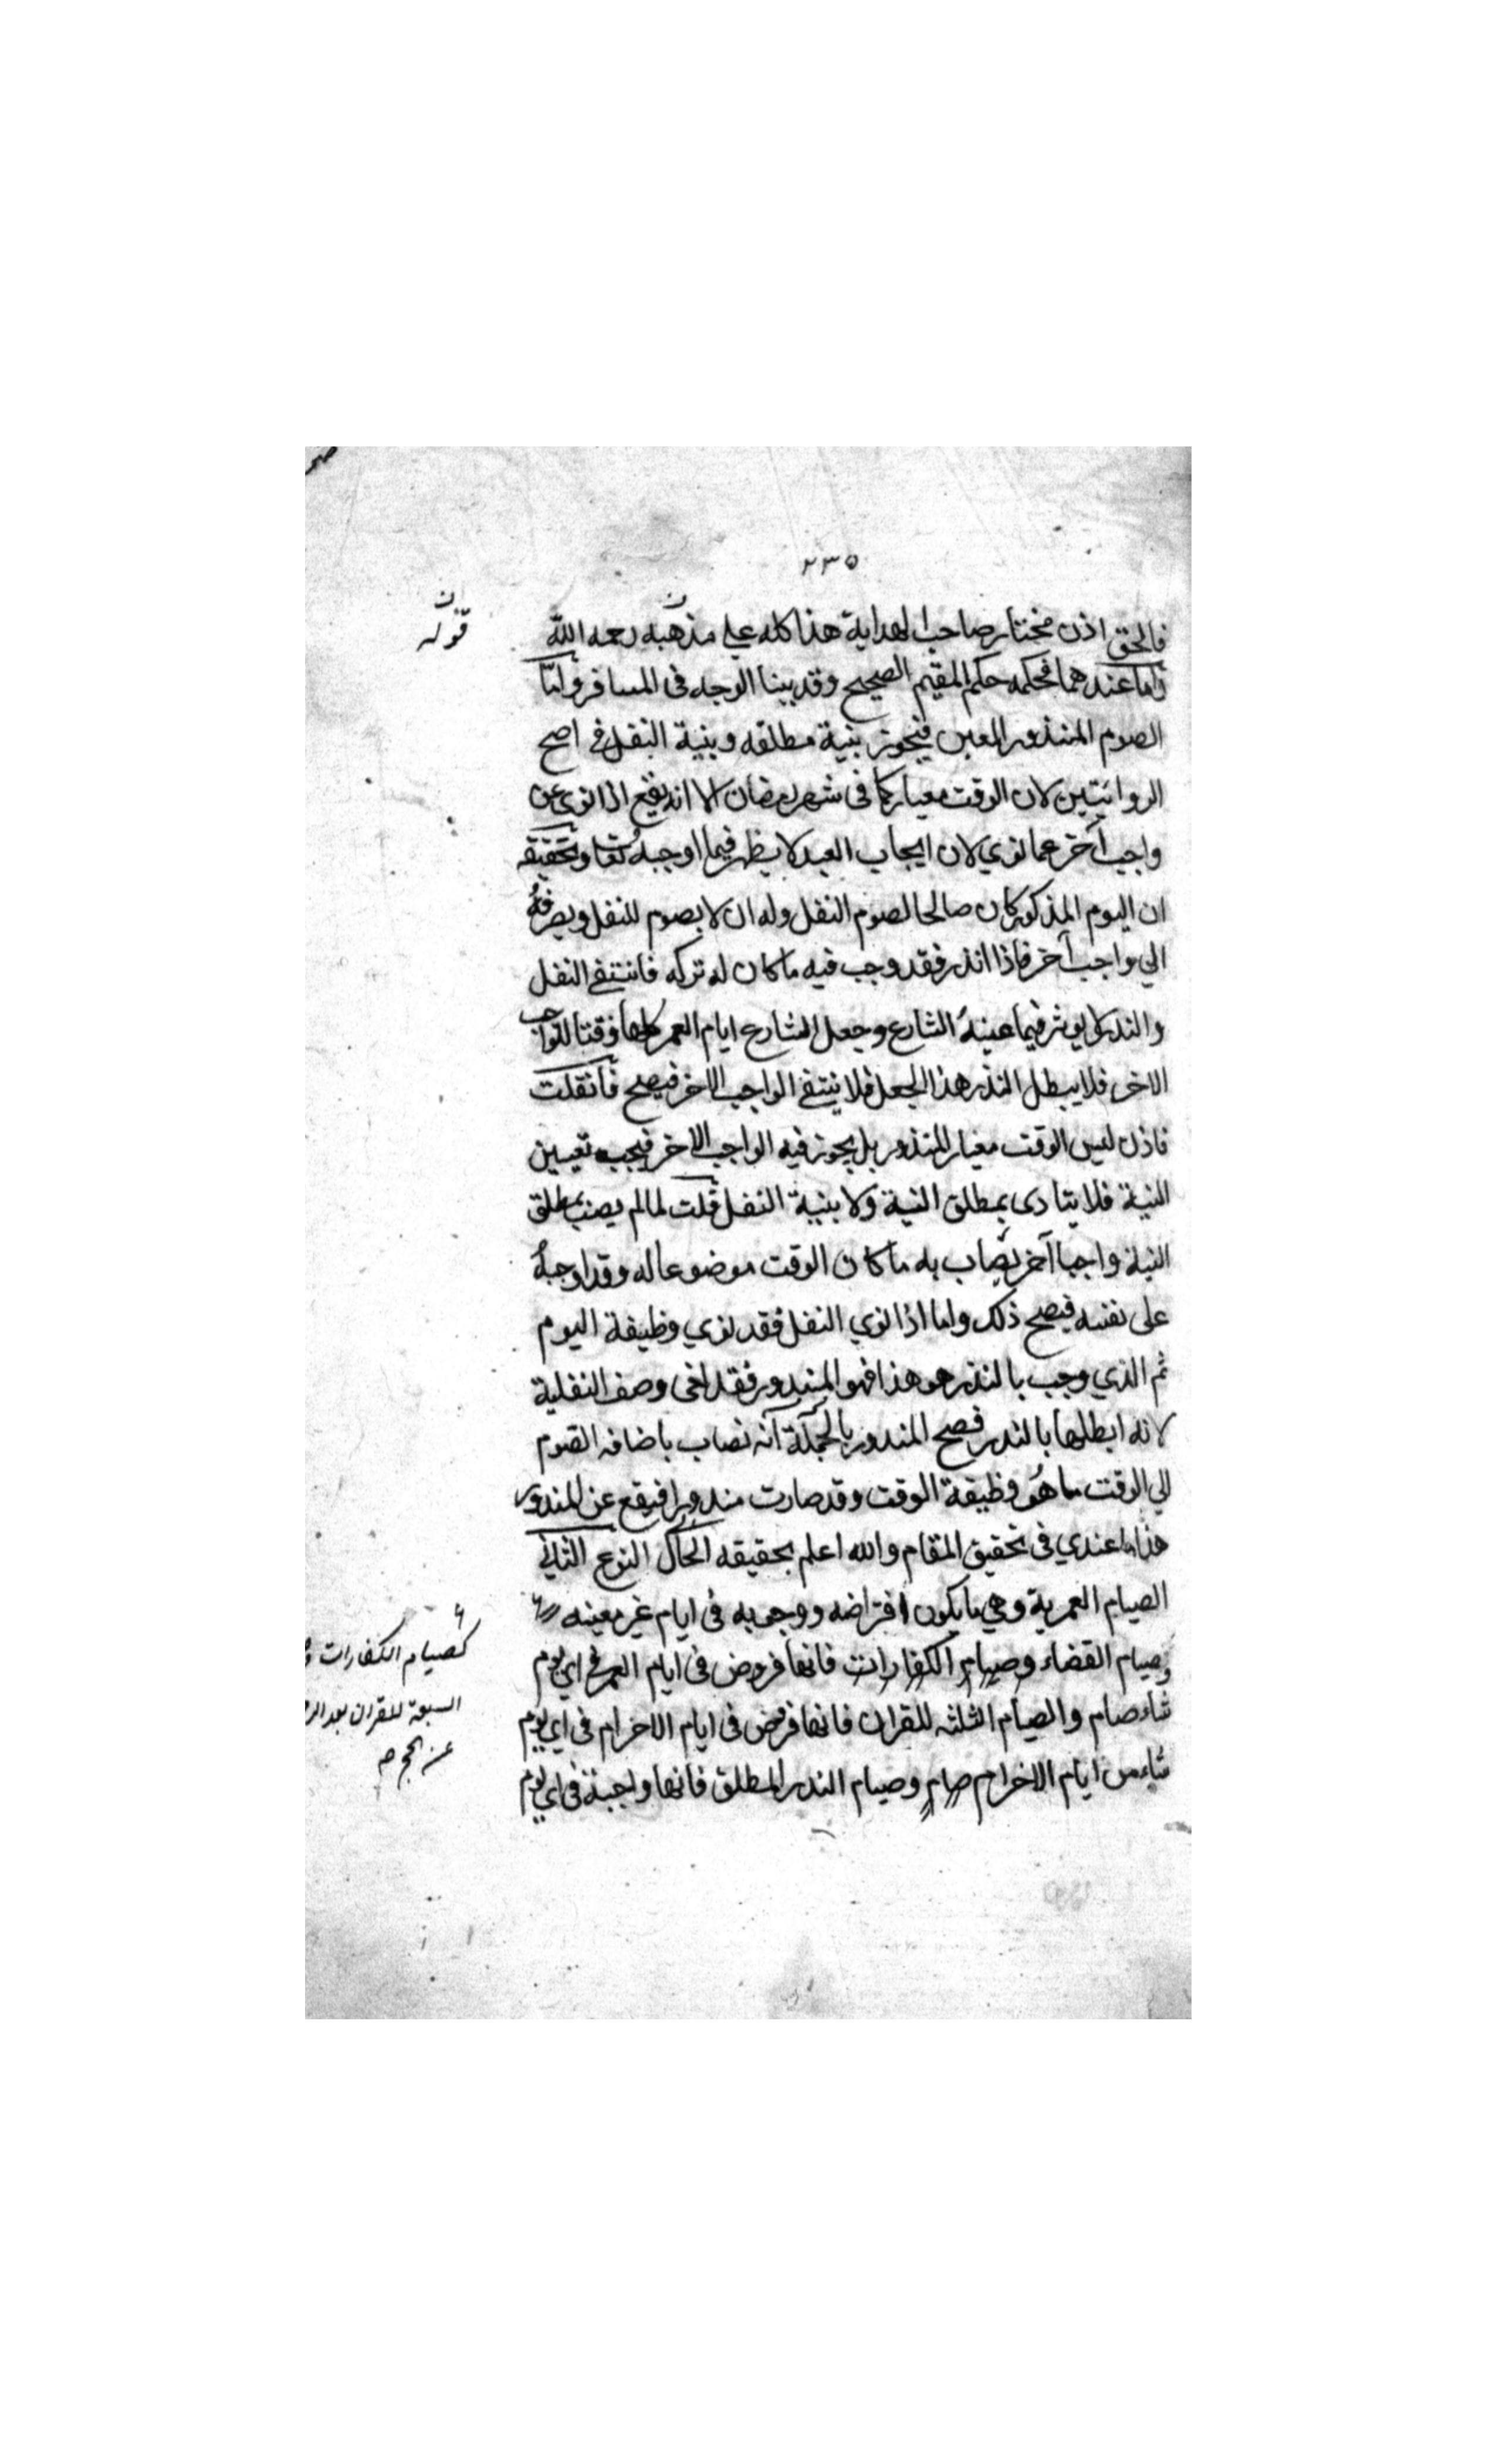 ٢٣٥
فالحق اذن مختار صاحب الهداية هذا كله على مذهبه رحمه الله
قوله
واما عندهما فحكمه حكم المقيم الصحيح وقد بينا الوجه فى المسافر واما
الصوم المنذور المعين فيجوز بنية مطلقه وبنية النفل فى اصح
الروايتين لان الوقت معيار كما فى شهر رمضان الا انه يقع اذا نوى عن
واجب آخر عما نوي لان ايجاب العبد لا يظهر فيما اوجبه تعا وتحقيقه
ان اليوم المذكور كان صالحا لصوم النفل وله ان لا يصوم للنفل ويصرفهُ
الي واجب آخر فاذا انذر فقد وجب فيه ما كان له تركه فانتفى النفل
والنذر لا يوثر فيما عينهُ الشارع وجعل الشارع ايام العمر كلها وقتا للواجب
الاخر فلا يبطل النذر هذا الجعل فلا ينتفى الواجب الاخر فيصح فانقلت
فاذن ليس الوقت معيار المنذور بل يجوز فيه الواجب الاخر فيجب تعيين
النية فلا يتادى بمطلق النية ولا بنية النفل قلت لما لم يصب بمطلق
النية واجبا آخر يصاب به ما كان الوقت موضوعا له وقد اوجبهُ
على نفسه فيصح ذلك واما اذا نوي النفل فقد نوي وظيفة اليوم
ثم الذي وجب بالنذر هو هذا فهو المنذور فقد لغى وصف النفلية
لانه ابطلها بالنذر فصح المنذور بالجملة انه نصاب باضافه الصوم
الي الوقت ما هُو وظيفة الوقت وقد صارت منذورا فيقع عن المنذور
هذا ما عندي فى تحقيق المقام والله اعلم بحقيقه الحال النوع الثاني
الصيام العمرية وهي ما يكون افتراضه ووجوبه فى ايام غير معينه
وصيام القضاء وصيام الكفارات فانها فروض فى ايام العمر فى اي يوم
شاء صام والصيام الثلثه للقران فانها فرض فى ايام الاحرام فى اي يوم
شاء من ايام الاحرام صام وصيام النذر المطلق فانها واجبة فى اي يوم
كصيام الكفارات
السبعة للقران بعد
عن الحج صح